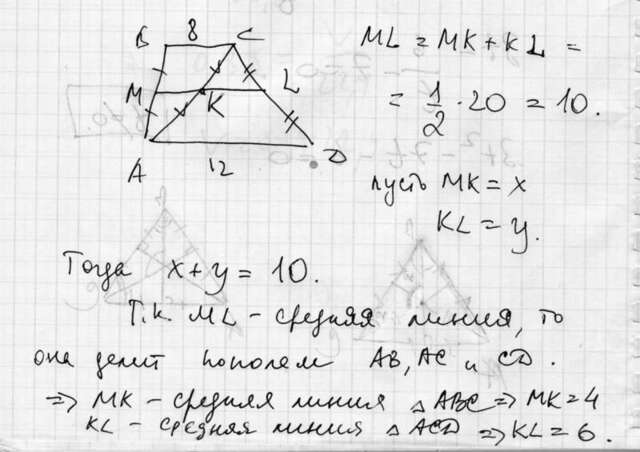 B 8 C
M K L
A 12 D
ML = MK + KL =
= 1/2 · 20 = 10.
пусть MK = x
KL = y.
Тогда x + y = 10.
Т.к. ML - средняя линия, то
она делит пополам AB, AC и CD.
=> MK - средняя линия △ ABC => MK = 4
KL - средняя линия △ ACD => KL = 6.